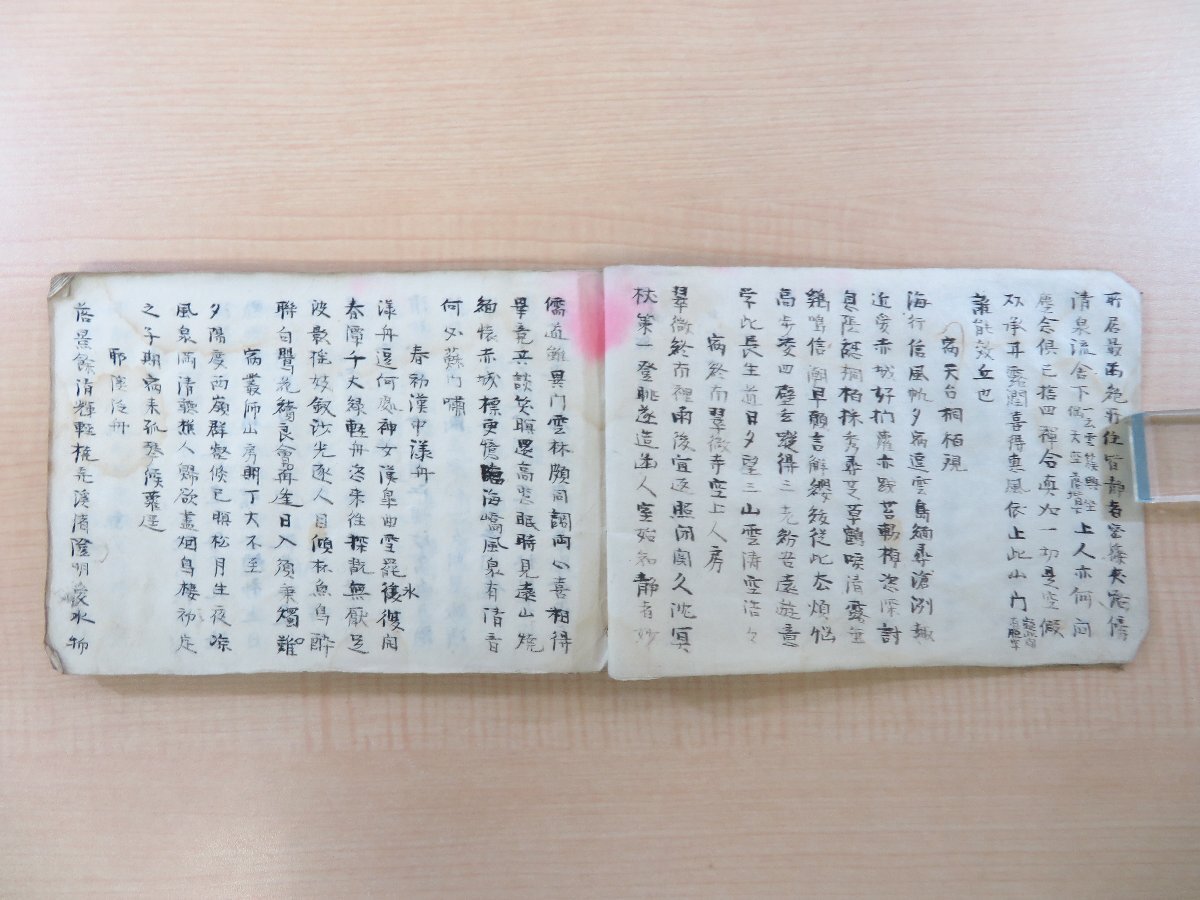 所居最幽絶所住皆静者密篠夾路傍
清泉流舍下上人亦何聞
塵念俱已捨四禪合真如一切是空假
承耳露潤喜得惠風依上此山門
誰能效丘也
宿天台桐栢観
海行信風帆夕宿逗雲島緬尋滄洲趣
近愛赤城好捫蘿亦踐苔輟棹恣深討
息陰憩桐栢採秀尋芝草鶴唳清露垂
鶏鳴信潮早願言解纓紱從此去煩悩
高歩凌四壁玄蹤得三老紛吾遠遊意
学此長生道日夕望三山雲涛空浩々
宿終南翠微寺空上人房
翠微終南裡雨後宜返照閉関久沈冥
杖策一登眺遂造幽人室始知静者妙
儒道雖異門雲林頗同調両心喜相得
畢竟共談笑暝還高窓眠時見遠山焼
緬懐赤城標更憶臨海嶠風泉有清音
何必蘇門嘯
春初漢中漾舟
漾舟逗何處神女漢皐曲雪罷氷復開
春潭千丈緑軽舟恣来往探翫無厭足
波影揺妓釵沙光逐人目傾杯魚鳥酔
聯句鶯花續良會再逢日入須秉燭難
宿業師山房期丁大不至
夕陽度西嶺群壑倐已暝松月生夜凉
風泉満清聴樵人歸欲盡烟鳥棲初定
之子期宿来孤琴候蘿逕
耶溪泛舟
落景餘清輝軽橈弄溪渚澄明愛水物